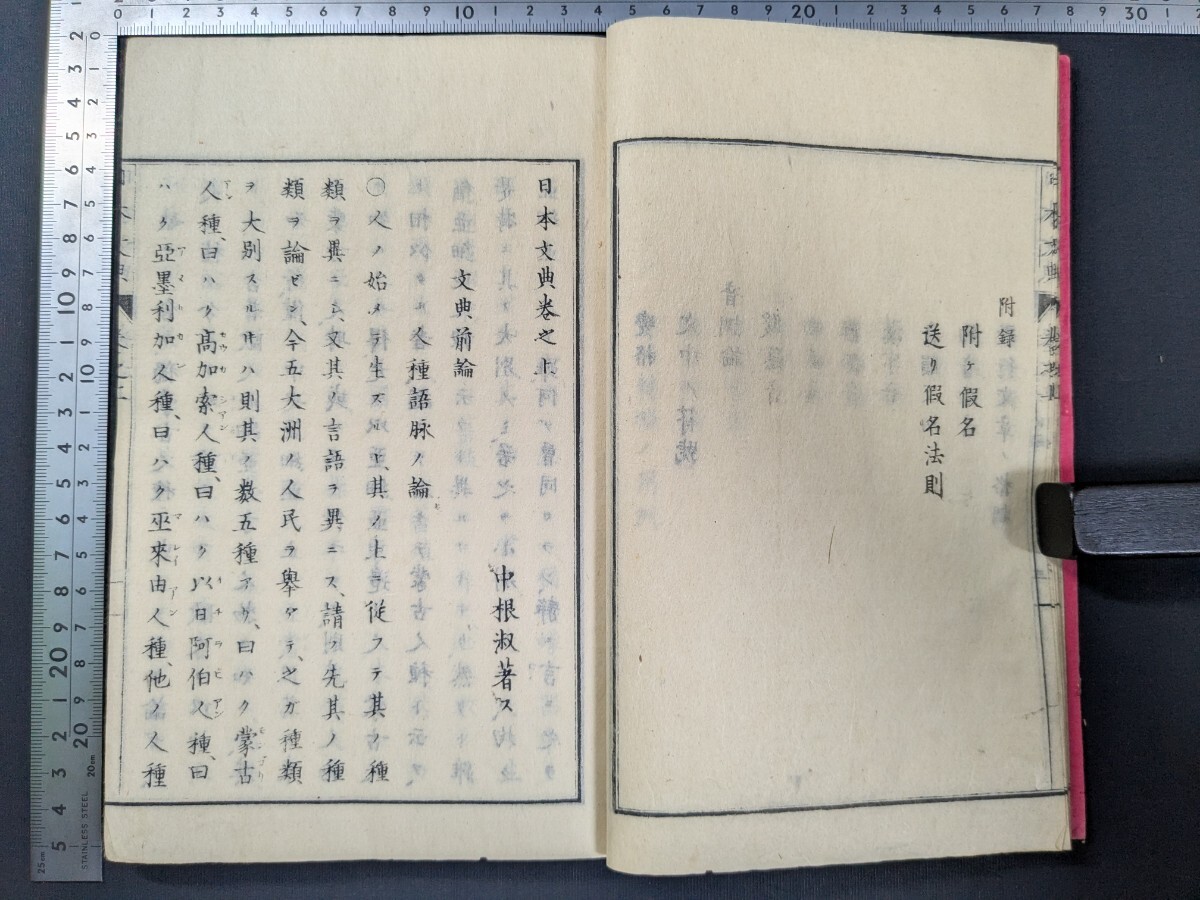 附録
附ケ假名
送リ假名法則
日本文典卷之上
中根淑著ス
文典前論
各種語脉ノ論
〇人ノ始メテ生ズルヤ、其ノ土ニ從フテ其ノ種
類ヲ異ニシ、又其ノ言語ヲ異ニス、請フ先其ノ種
類ヲ論ゼン、今五大洲ノ人民ヲ舉ゲテ、之ガ種類
ヲ大別スルキハ則其ノ數五種アリ、曰ハク蒙古
人種、曰ハク高加索人種、曰ハク以日阿伯人種、曰
ハク亞墨利加人種、曰ハク巫來由人種、他ノ人種
STAINLESS STEEL